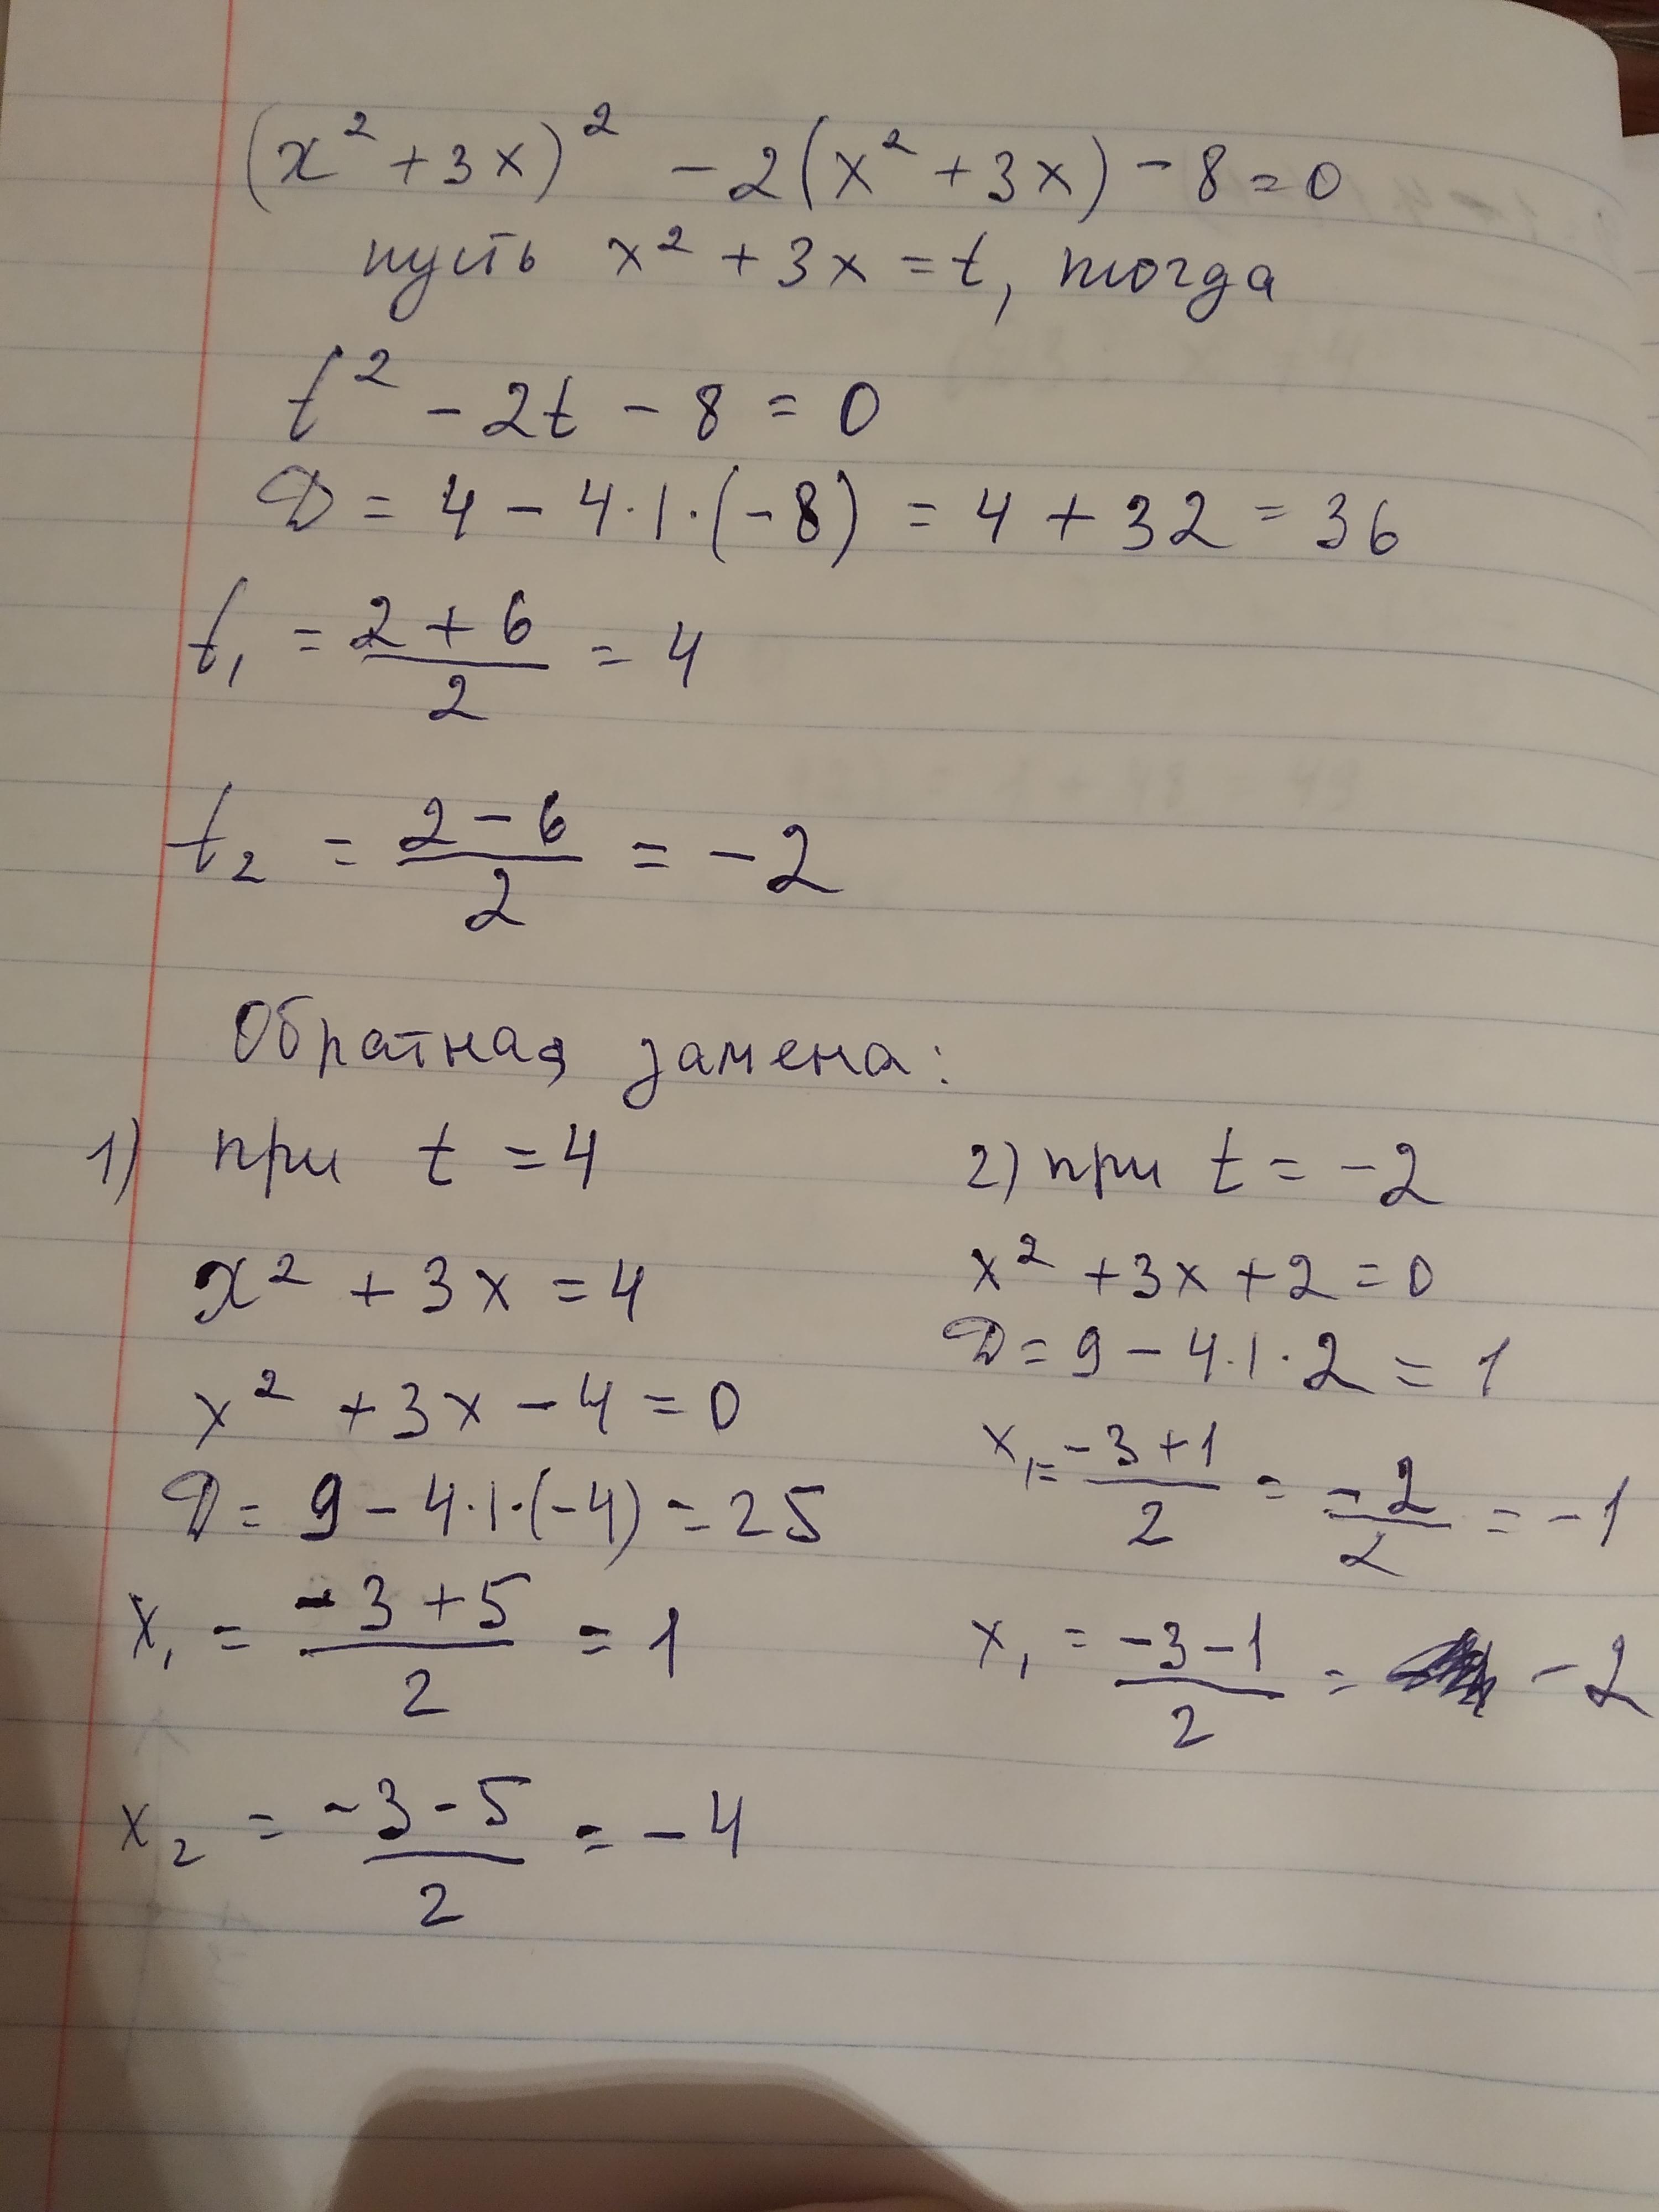 (x² + 3x)² - 2(x² + 3x) - 8 = 0
пусть x² + 3x = t, тогда
t² - 2t - 8 = 0
D = 4 - 4·1·(-8) = 4 + 32 = 36
t₁ = (2 + 6)/2 = 4
t₂ = (2 - 6)/2 = -2
Обратная замена:
1) при t = 4
x² + 3x = 4
x² + 3x - 4 = 0
D = 9 - 4·1·(-4) = 25
x₁ = (-3 + 5)/2 = 1
x₂ = (-3 - 5)/2 = -4
2) при t = -2
x² + 3x + 2 = 0
D = 9 - 4·1·2 = 1
x₁ = (-3 + 1)/2 = -2/2 = -1
x₁ = (-3 - 1)/2 = -2